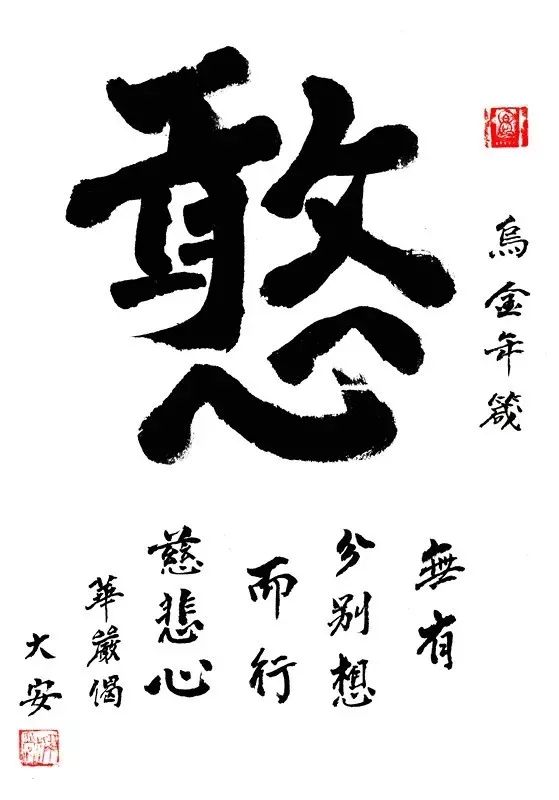 憨
烏金年箋
無有
分别想
而行
慈悲心
華嚴偈
大安